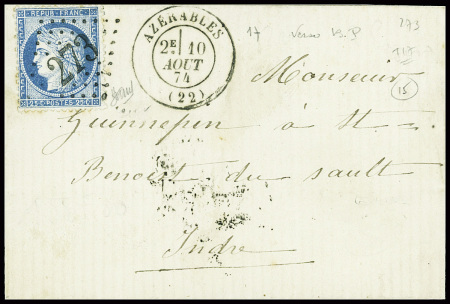 REPUB. FRANC.
273
25 C. POSTES 25 C.
AZÉRABLES
2E 10
AOUT
74
(22)
17
Verso
273
117
15
Monsieur
Guinnepin à St
Benoist du Sault
Indre